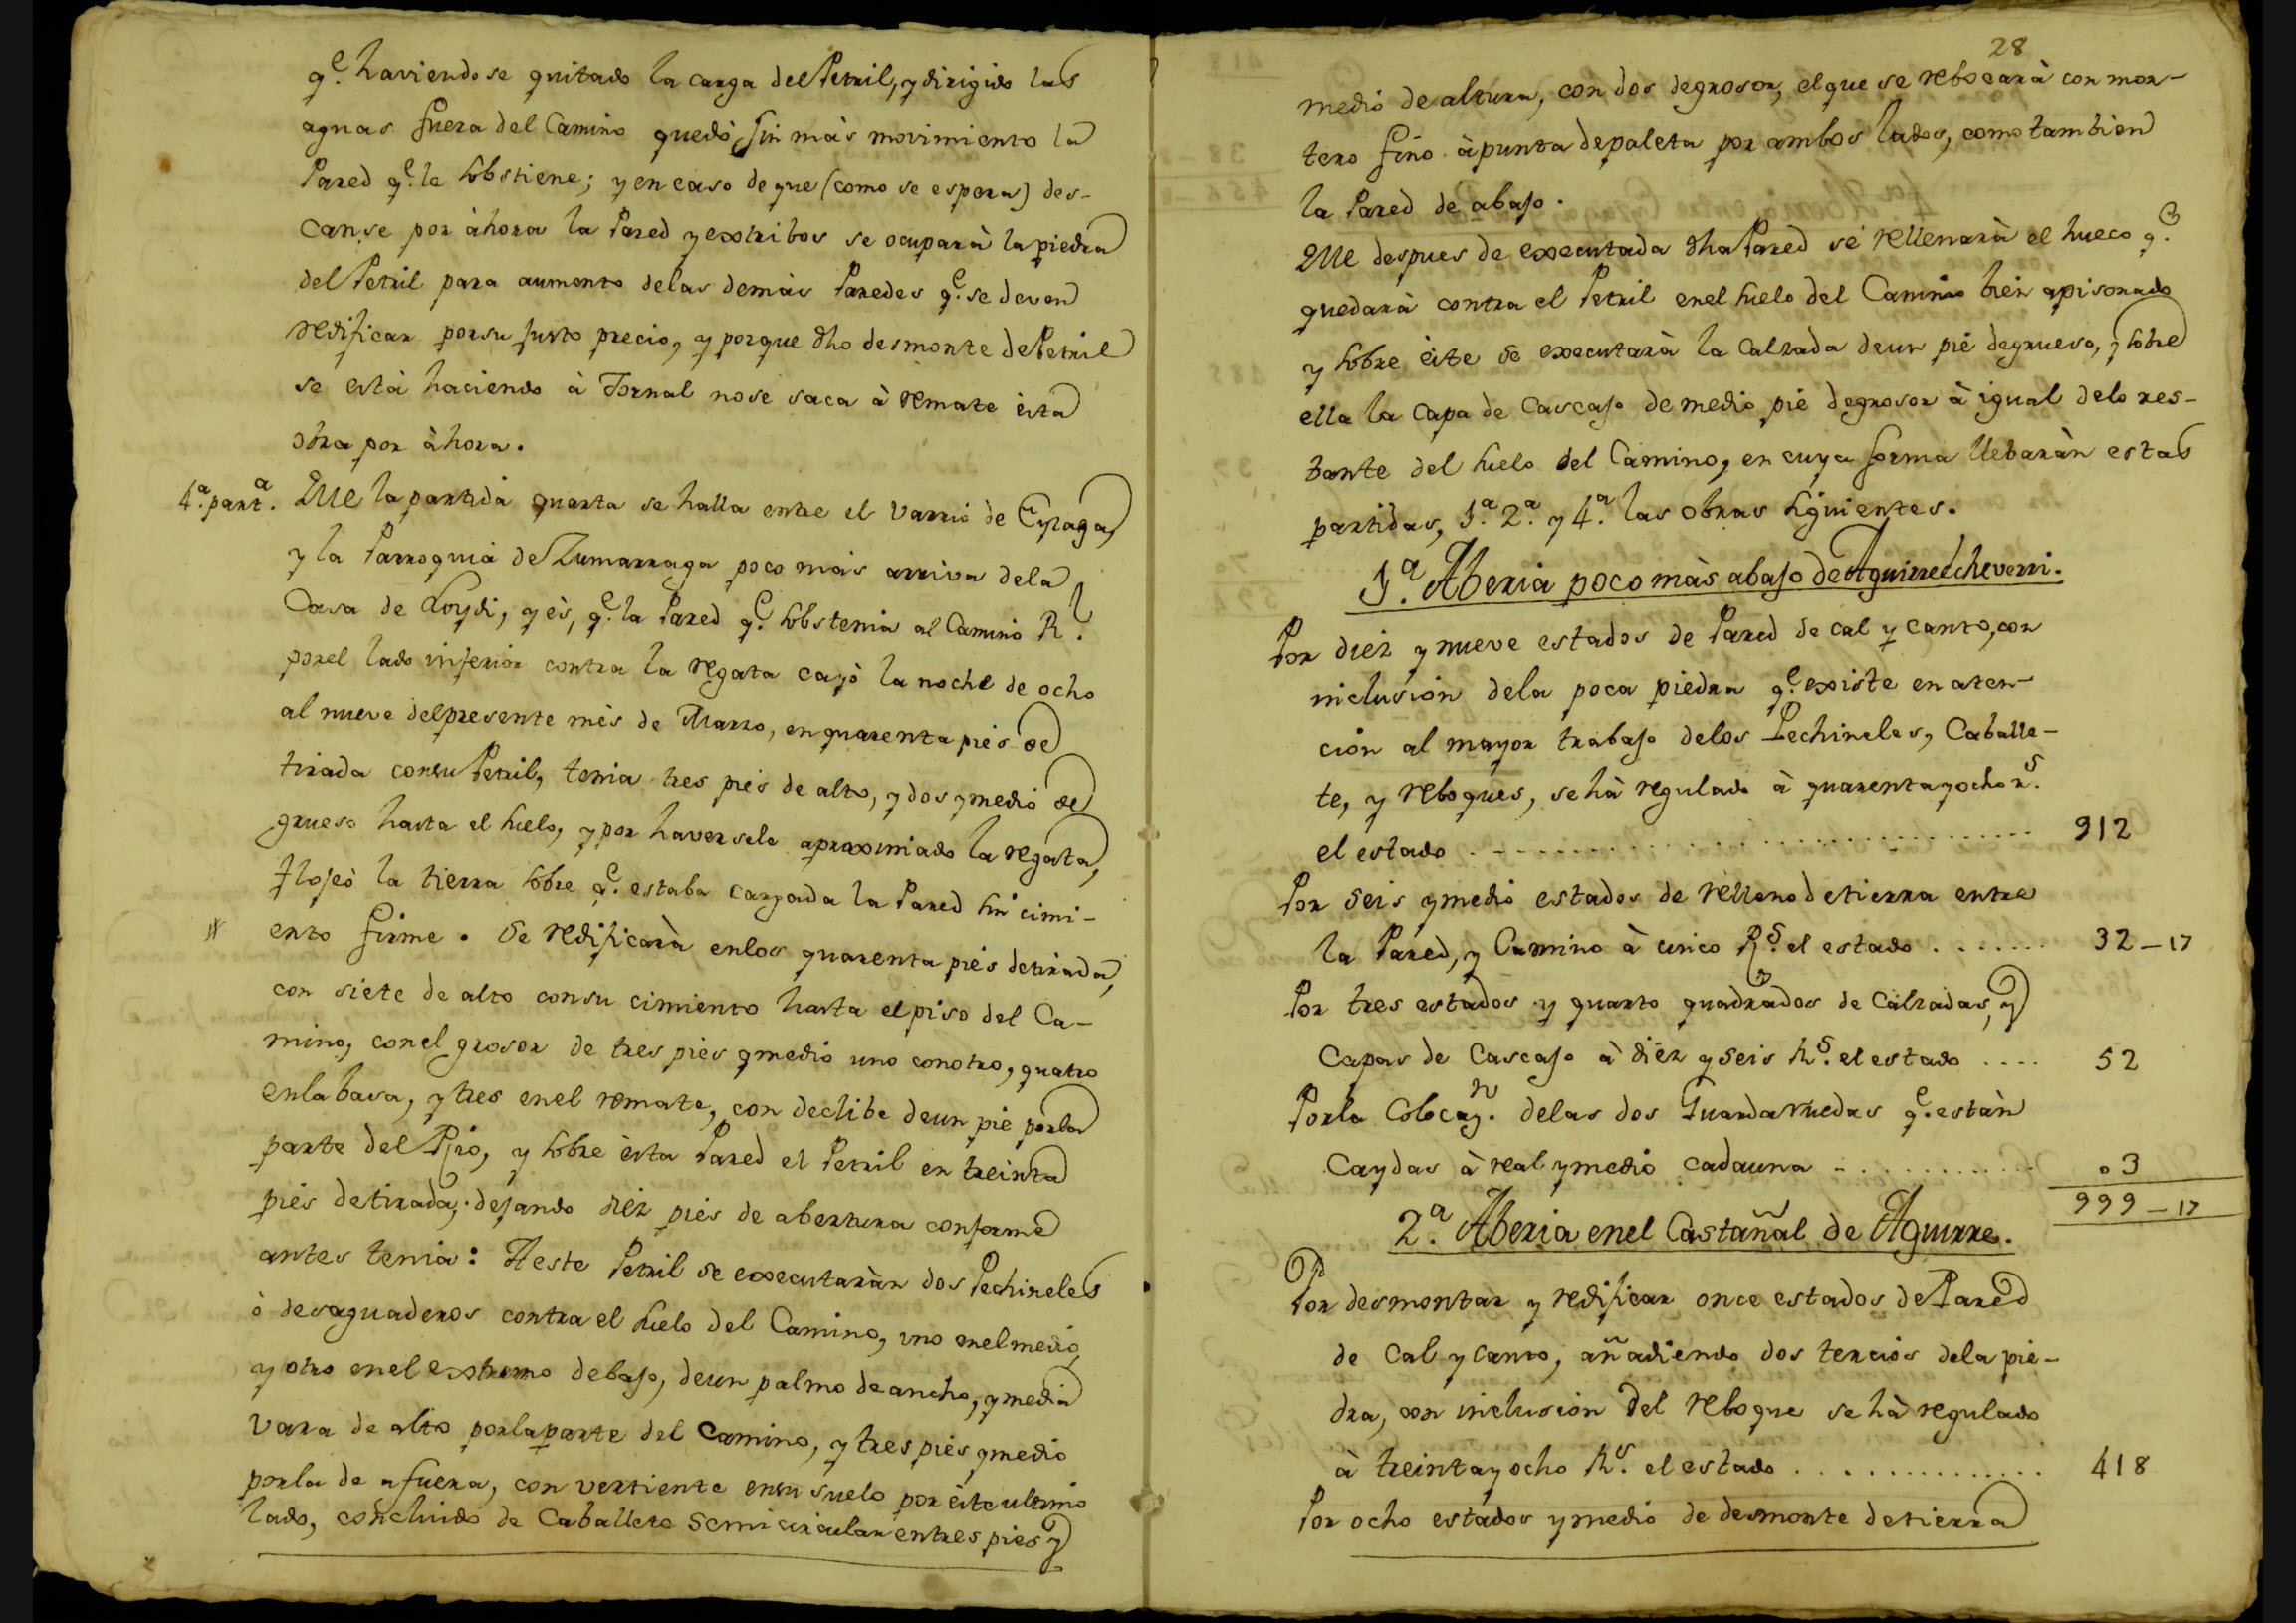 q.e haviendose quitado la carga del Petril, y dirigido las
aguas fuera del Camino quedò sin màs movimiento la
Pared q.e le sobstiene; y en caso de que (como se espera) des-
canse por àhora la Pared y extribos se ocuparà la piedra
del Petril para aumento delas demàs Paredes q.e se deven
redificar por su justo precio, y porque dho desmonte de Petril
se està haciendo à Jornal nose saca à remate èsta
obra por àhora.
4.a part.a Que la partida quarta se halla entre el varrio de Eyzaga,
y la Parroquia de Zumarraga poco màs arriva dela
Casa de Loydi, y ès, q.e la Pared q.e sobstenia al Camino R.l
porel lado inferior contra la regata cayò la noche de ocho
al nueve delpresente mès de Marzo, en quarenta pies de
tirada consu Petril, tenia tres pies de alto, y dos ymedio de
grueso hasta el suelo, y por haversele aproximado la regata,
flojeò la tierra sobre q.e estaba cargada la Pared sin cimi-
ento firme. Se redificarà enlos quarenta pies detirada,
con siete de alto consu cimiento hasta el piso del Ca-
mino, conel grosor de tres pies ymedio uno conotro, quatro
enla basa, y tres enel remate, con declibe deun pie porla
parte del Rio, y sobre èsta Pared el Petril en treinta
pies detirada, dejando diez pies de abertura conforme
antes tenia: A este Petril se executaràn dos Pechineles
ò desaguaderos contra el suelo del Camino, uno enel medio,
y otro enel extremo debajo, deun palmo de ancho, y media
vara de alto porla parte del Camino, y tres pies ymedio
porla de afuera, con vertiente ensu suelo por èste ultimo
lado, concluido de Caballete semicircular entres pies y
28
medio de altura, con dos degrosor, el que se rebocarà con mor-
tero fino à punta depaleta por ambos lados, como tambien
la Pared de abajo.
Que despues de executada dha Pared se rellenarà el hueco q.e
quedarà contra el Petril enel suelo del Camino bien apisonado
y sobre èste se executarà la Calzada deun piè degrueso, y sobre
ella la capa de Cascajo de medio piè degrosor à igual delo res-
tante del suelo del Camino, en cuya forma llebaràn estas
partidas, 1.a 2.a y 4.a las obras siguientes.
1.a Aberia poco màs abajo de Aguirreecheverri.
Por diez y nueve estados de Pared de cal y canto, con
inclusion dela poca piedra q.e existe en aten-
cion al mayor trabajo delos Pechineles, Caballe-
te, y reboques, se hà regulado à quarenta y ocho r.s
el estado . . . . . . . . . . 912
Por seis ymedio estados de relleno detierra entre
la Pared, y Camino à cinco R.s el estado . . . . . . . 32-17
Por tres estados y quarto quadrados de Calzadas, y
Capas de Cascajo à diez y seis R.s el estado . . . . 52
Porla Colocaz.n delas dos Guardaruedas q.e estàn
Caydas à real ymedio cadauna . . . . . . . . . 03
999-17
2.a Aberia enel Castañal de Aguirre.
Por desmontar y redificar once estados de Pared
de Cal y canto, añadiendo dos tercios dela pie-
dra, con inclusion del reboque se hà regulado
à treinta y ocho R.s el estado . . . . . . . . . . 418
Por ocho estados ymedio de desmonte detierra